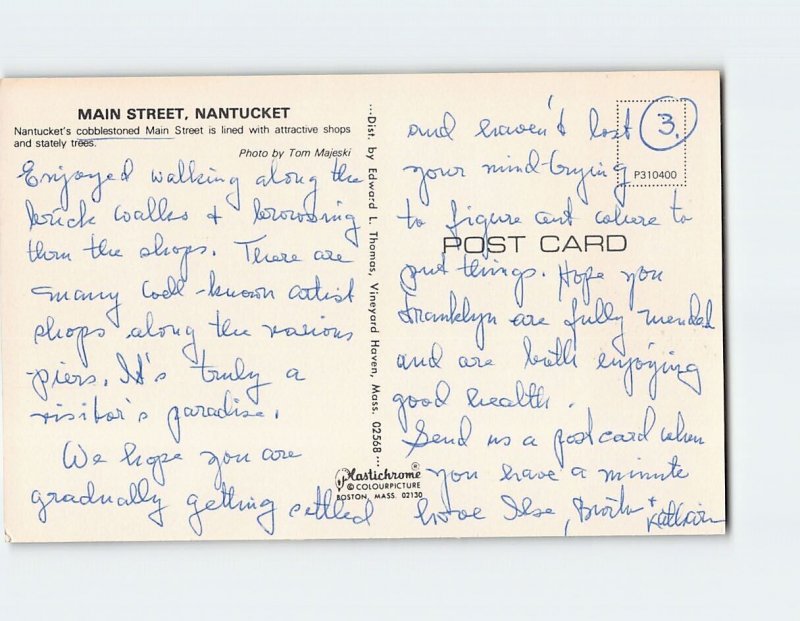 MAIN STREET, NANTUCKET
Nantucket's cobblestoned Main Street is lined with attractive shops
and stately trees.
Photo by Tom Majeski
Enjoyed walking along the
brick walks + browsing
thru the shops. There are
many well-known artist
shops along the various
piers. It's truly a
visitor's paradise.
We hope you are
gradually getting settled
...Dist. by Edward L. Thomas, Vineyard Haven, Mass. 02568...
Plastichrome®
© COLOURPICTURE
BOSTON, MASS. 02130
3.
P310400
POST CARD
and haven't lost
your mind trying
to figure out where to
put things. Hope you
Franklyn are fully mended
and are both enjoying
good health.
Send us a postcard when
you have a minute
Love Ilse, +